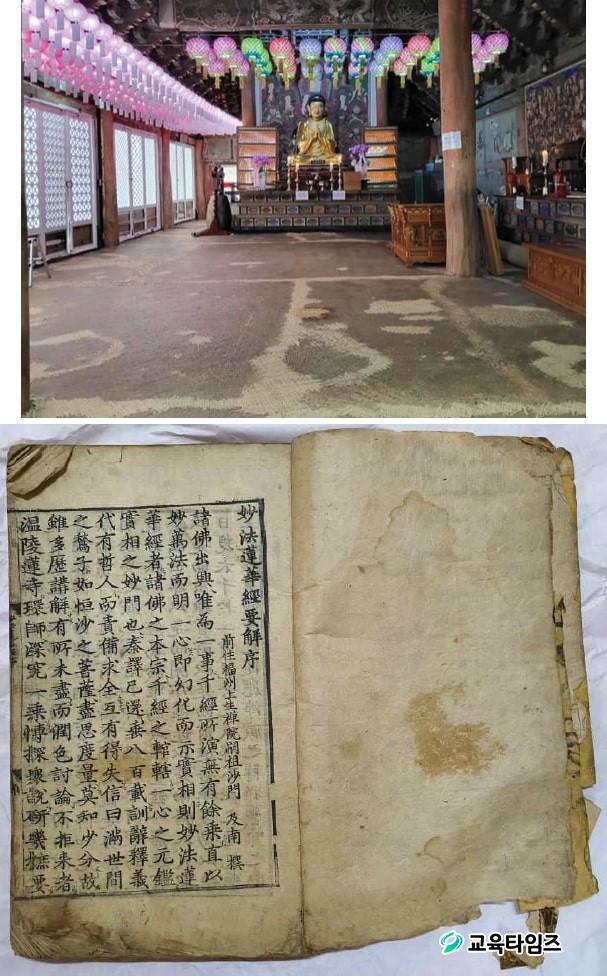 妙法蓮華經要解序
前住福州上生禪院嗣祖沙門 及南 撰
諸佛出興唯爲一事千經所演無有餘乘直以
妙萬法而明一心即幻化而示實相則妙法蓮
華經者諸佛之本宗千經之輨轄一心之元鑑
實相之妙門也秦譯已還垂八百載訓辭釋義
代有哲人而責備求全互有得失信曰滿世間
之鶖子如恒沙之菩薩盡思度量莫知少分故
雖多歷講解有所未盡而潤色討論不拒來者
温陵蓮寺環師深究一乘博探衆說研幾摭要
교육타임즈